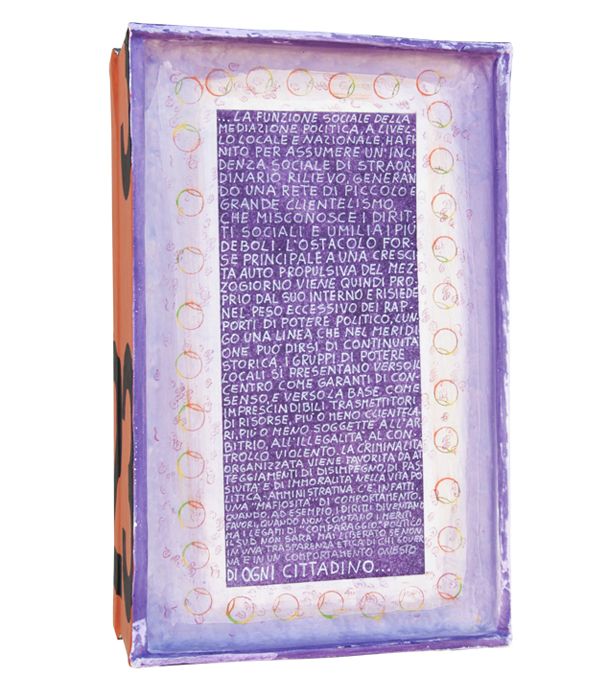 ...LA FUNZIONE SOCIALE DELLA
MEDIAZIONE POLITICA, A LIVEL-
LO LOCALE E NAZIONALE, HA FI-
NITO PER ASSUMERE UN'INCI-
DENZA SOCIALE DI STRAOR-
DINARIO RILIEVO, GENERAN-
DO UNA RETE DI PICCOLO E
GRANDE CLIENTELISMO,
CHE MISCONOSCE I DIRIT-
TI SOCIALI E UMILIA I PIÙ
DEBOLI. L'OSTACOLO FOR-
SE PRINCIPALE A UNA CRESCI-
TA AUTO PROPULSIVA DEL MEZ-
ZOGIORNO VIENE QUINDI PRO-
PRIO DAL SUO INTERNO E RISIEDE
NEL PESO ECCESSIVO DEI RAP-
PORTI DI POTERE POLITICO, LUN-
GO UNA LINEA CHE NEL MERIDI-
ONE PUÒ DIRSI DI CONTINUITÀ
STORICA. I GRUPPI DI POTERE
LOCALI SI PRESENTANO VERSO IL
CENTRO COME GARANTI DI CON-
SENSO, E VERSO LA BASE, COME
IMPRESCINDIBILI TRASMETTITORI
DI RISORSE, PIÙ O MENO CLIENTELA-
RI, PIÙ O MENO SOGGETTE ALL'AR-
BITRIO, ALL'ILLEGALITÀ, AL CON-
TROLLO VIOLENTO. LA CRIMINALITÀ
ORGANIZZATA VIENE FAVORITA DA AT-
TEGGIAMENTI DI DISIMPEGNO, DI PAS-
SIVITÀ E DI IMMORALITÀ NELLA VITA PO-
LITICA-AMMINISTRATIVA. C'È, INFATTI,
UNA "MAFIOSITÀ" DI COMPORTAMENTO,
QUANDO, AD ESEMPIO, I DIRITTI DIVENTANO
FAVORI, QUANDO NON CONTANO I MERITI,
MA I LEGAMI DI "COMPARAGGIO" POLITICO.
IL SUD NON SARÀ MAI LIBERATO SE NON
IN UNA TRASPARENZA ETICA DI CHI GOVER-
NA E IN UN COMPORTAMENTO ONESTO
DI OGNI CITTADINO...